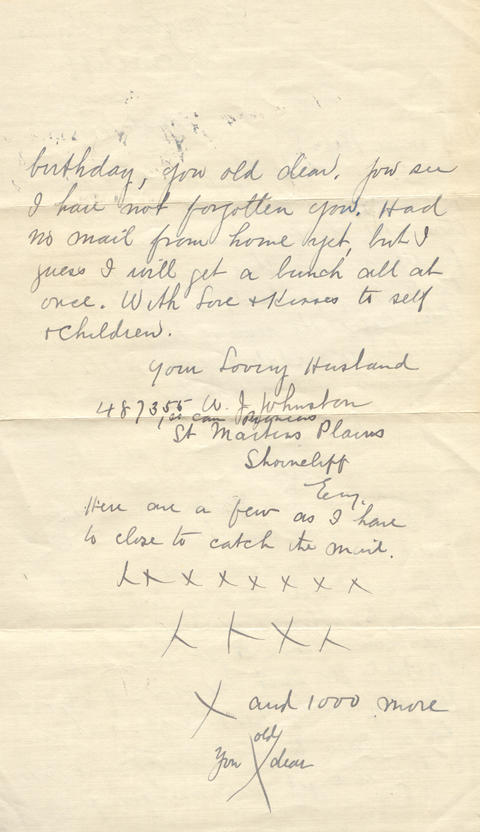 birthday, you old dear. You see
I have not forgotten you. Had
no mail from home yet, but I
guess I will get a bunch all at
once. With Love + Kisses to self
+ children.
Your Loving Husband
487355 W. J. Johnston
1st Can Pioneers
St Martins Plains
Shorncliff
Eng.
Here are a few as I have
to close to catch the mail.
X X X X X X X X
X X X X
X and 1000 more
You old X dear